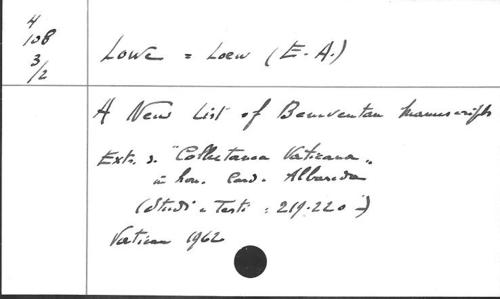 4
108
3/2
Lowe = Loew (E-A.)
A New List of Beneventan Manuscripts
Extr. d. "Collectanea Vaticana"
in hon. Card. Albareda
(Studi e Testi : 219-220-)
Vatican 1962